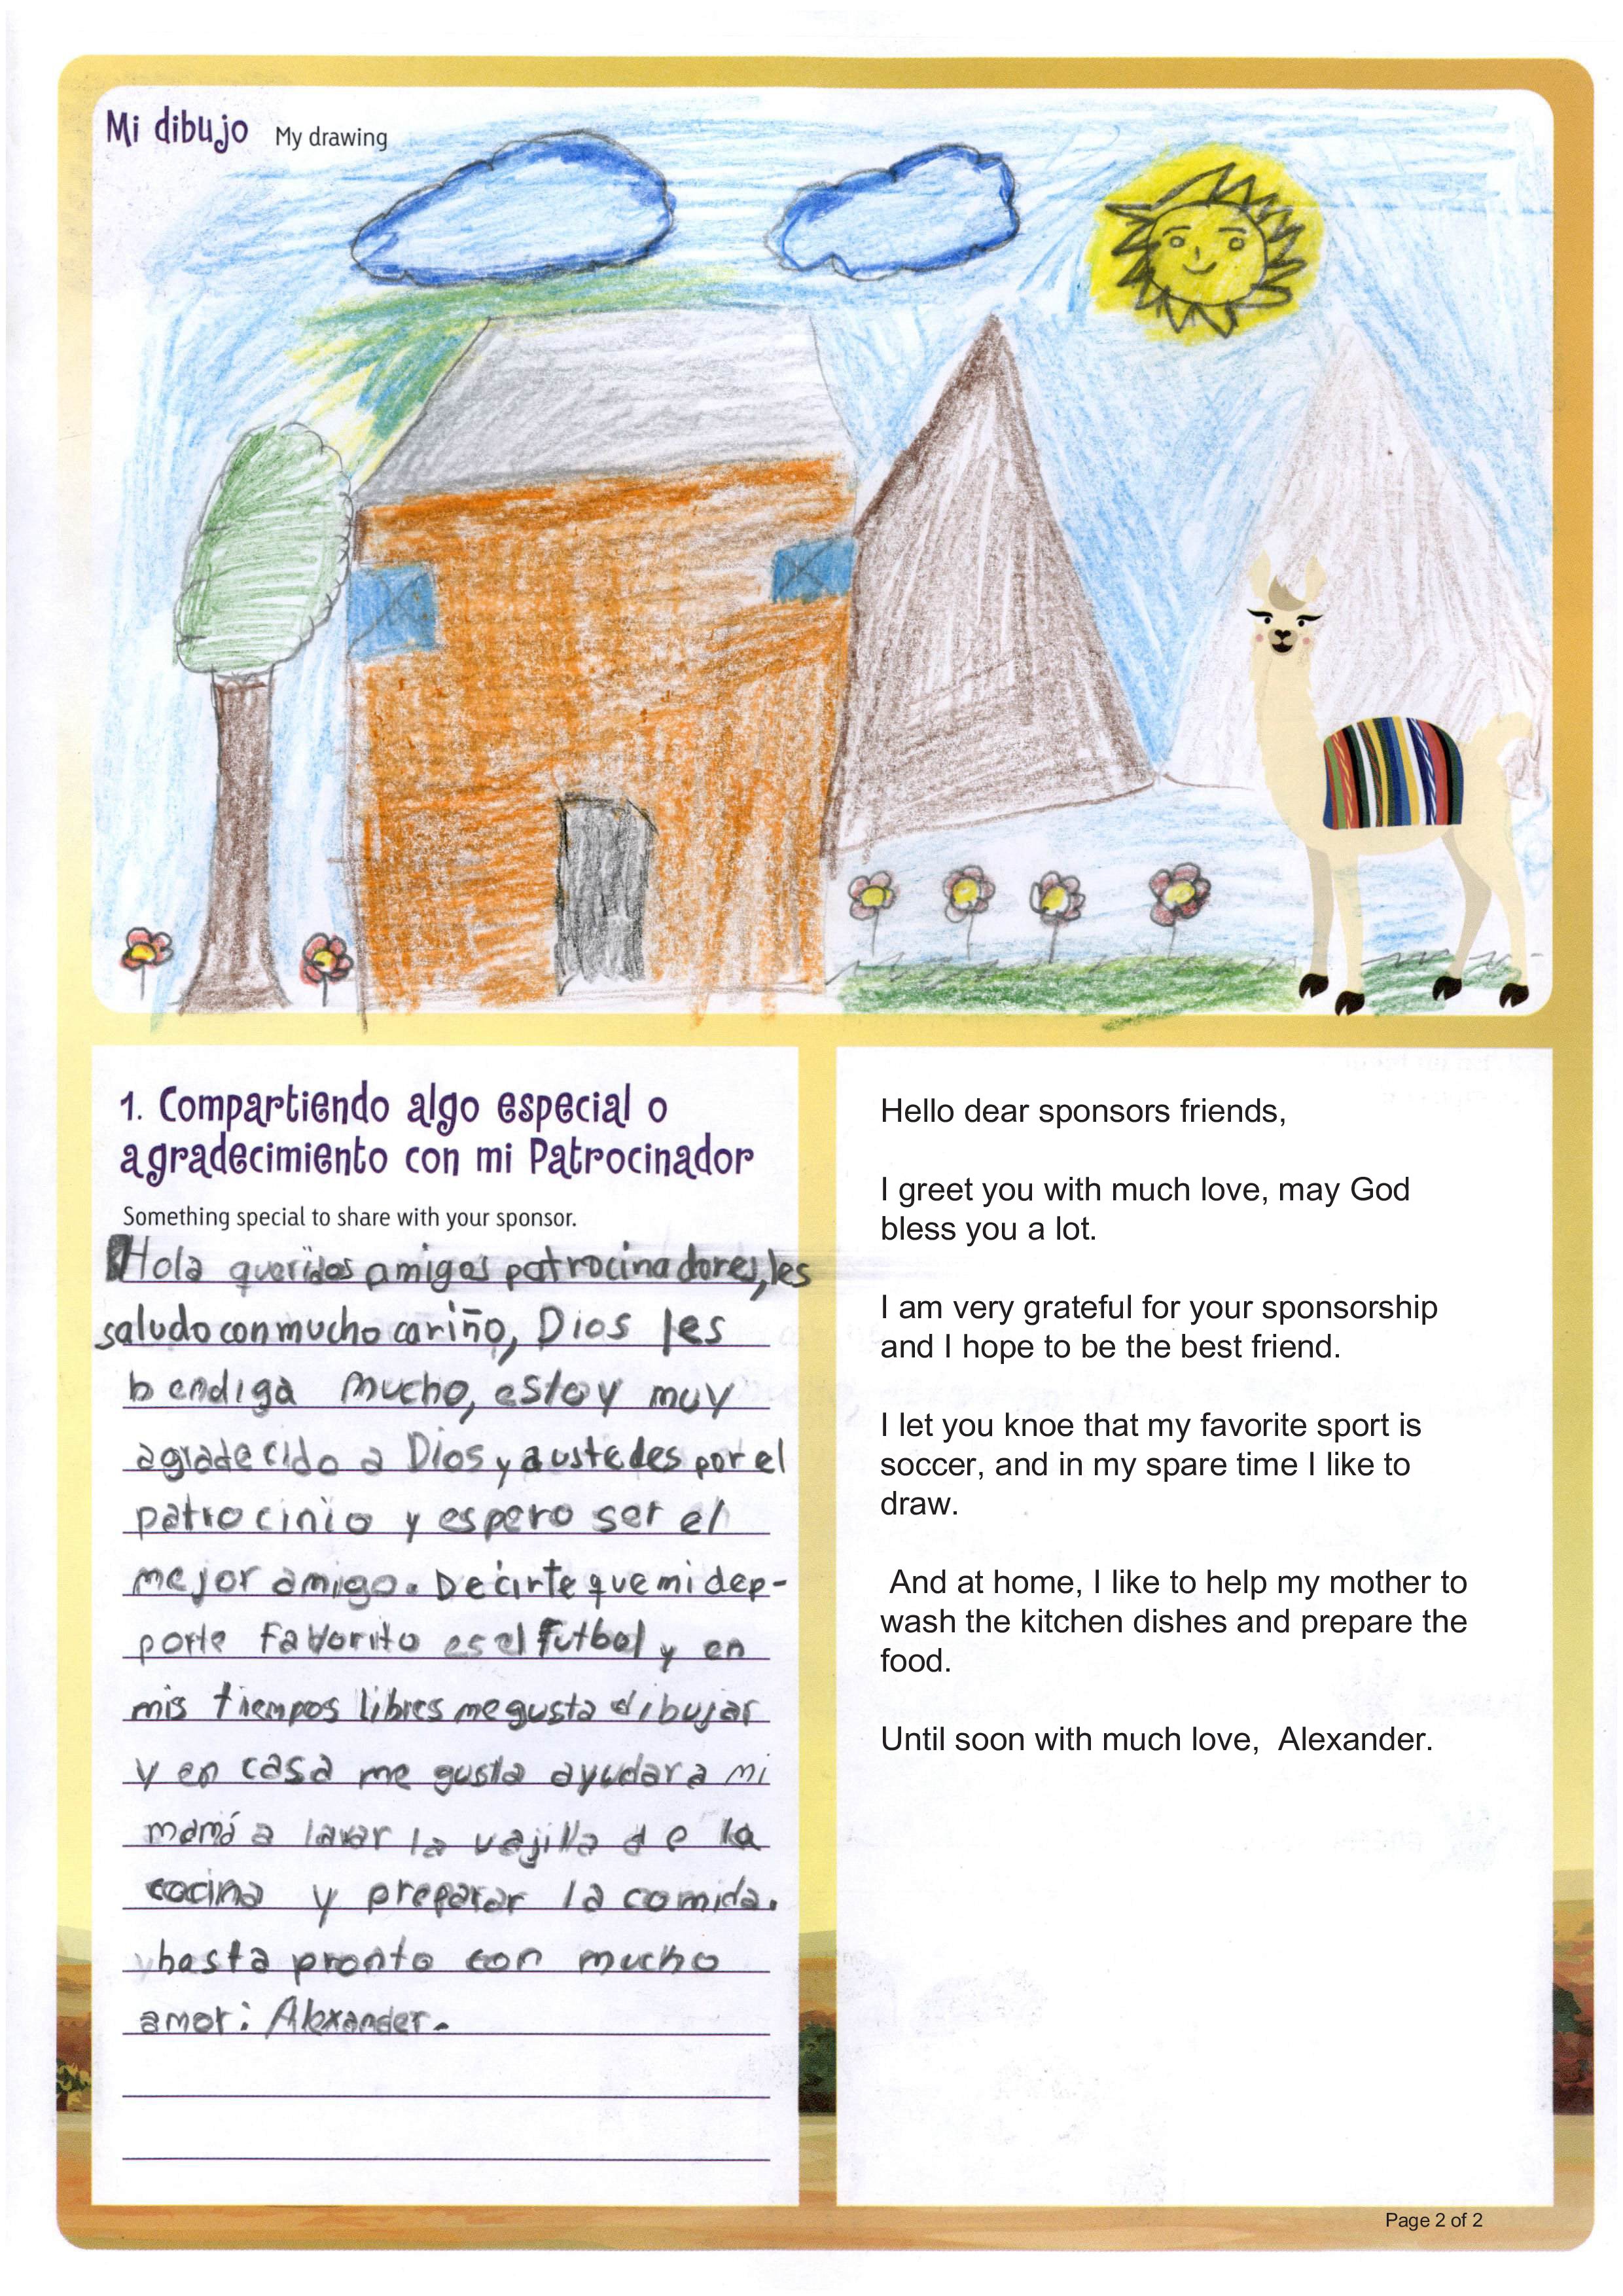 Mi dibujo My drawing
1. Compartiendo algo especial o
agradecimiento con mi Patrocinador
Something special to share with your sponsor.
Hola queridos amigos patrocinadores, les
saludo con mucho cariño, Dios les
bendiga mucho, estoy muy
agradecido a Dios y a ustedes por el
patrocinio y espero ser el
mejor amigo. Decirte que mi dep-
porte favorito es el futbol y en
mis tiempos libres me gusta dibujar
y en casa me gusta ayudar a mi
mamá a lavar la vajilla de la
cocina y preparar la comida.
hasta pronto con mucho
amor: Alexander.
Hello dear sponsors friends,
I greet you with much love, may God
bless you a lot.
I am very grateful for your sponsorship
and I hope to be the best friend.
I let you knoe that my favorite sport is
soccer, and in my spare time I like to
draw.
And at home, I like to help my mother to
wash the kitchen dishes and prepare the
food.
Until soon with much love, Alexander.
Page 2 of 2